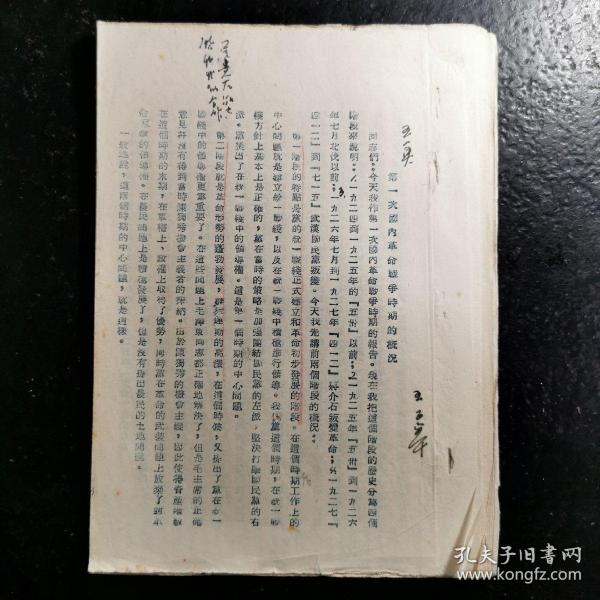 第一次國內革命戰爭時期的概況
同志們：今天我作第一次國內革命戰爭時期的報告。現在我把這個階段的歷史分為四個
階段來說明：1.一九二四到一九二五年的『五卅』以前；2.一九二五年『五卅』到一九二六
年七月北伐以前；3.一九二六年七月到一九二七年『四一二』蔣介石叛變革命；4.一九二七『
四一二』到『七一五』武漢國民黨叛變。今天我先講前兩個階段的概況。
第一階段的特點是黨的統一戰綫正式建立和革命初步發展的階段。在這個時期工作上的
中心問題就是建立統一戰綫，以及在統一戰綫中積極進行領導。我黨這個時期，在統一戰
綫方針上基本上是正確的，黨在當時的策略是加强團結國民黨的左派，堅決打擊國民黨的右
派。黨提出了在統一戰綫中的領導權。這是第一個時期的中心問題。
第二階段就是革命形勢的蓬勃發展，群衆運動的高漲，在這個時候，又提出了黨在統一
戰綫中的領導權更重要了。在這些問題上毛澤東同志都正確地解決了，但是毛主席的正確
意見并沒有得到當時陳獨秀機會主義者的採納。由於陳獨秀的機會主義，因此使得
在這個時期的末期，在軍權上、政權上取得了優勢，同時黨在革命的武裝問題上放棄了對革
命軍隊的領導權。在農民問題上是積極發展了，但是沒有提出農民的土地問題。
一般地說，這兩個時期的中心問題，就是這樣。
孔夫子旧书网
www.kongfz.com